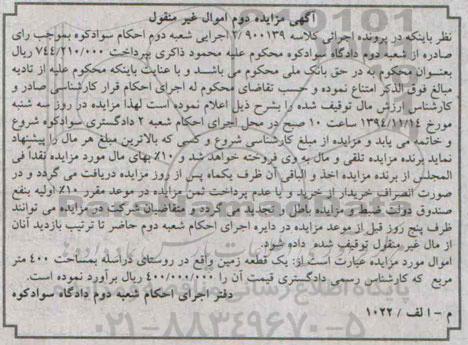 آگهی مزایده دوم اموال غیر منقول
نظر باینکه در پرونده اجرائی کلاسه ۲/۹۰۰۱۳۹ اجرایی شعبه دوم احکام سوادکوه بموجب رای
صادره از شعبه دوم دادگاه سوادکوه محکوم علیه محمود ذاکری بپرداخت ۷۴۴/۲۱۰/۰۰۰ ریال
بعنوان محکوم به در حق بانک ملی محکوم می باشد و با عنایت باینکه محکوم علیه از تادیه
مبالغ فوق الذکر امتناع نموده و حسب تقاضای محکوم له اجرای احکام قرار کارشناسی صادر و
کارشناس ارزش مال توقیف شده را بشرح ذیل اعلام نموده است لهذا مزایده در روز سه شنبه
مورخ ۱۳۹۴/۱۱/۱۴ ساعت ۱۰ صبح در محل اجرای احکام شعبه ۲ دادگستری سوادکوه شروع
و خاتمه می یابد و مزایده از مبلغ کارشناسی شروع و کسی که بالاترین مبلغ هر مال را پیشنهاد
نماید برنده مزایده تلقی و مال به وی فروخته خواهد شد و ۱۰٪ بهای مال مورد مزایده نقدا فی
المجلس از برنده مزایده اخذ و الباقی آن ظرف یکماه پس از روز مزایده دریافت می گردد و در
صورت انصراف خریدار از خرید و یا عدم پرداخت ثمن مزایده در موعد مقرر ۱۰٪ اولیه بنفع
صندوق دولت ضبط و مزایده باطل و تجدید می گردد و متقاضیان شرکت در مزایده می توانند
ظرف پنج روز قبل از موعد مزایده در دایره اجرای احکام شعبه دوم حاضر تا ترتیب بازدید آنان
از مال غیر منقول توقیف شده داده شود.
اموال مورد مزایده عبارت است از: یک قطعه زمین واقع در روستای کراسله بمساحت ۴۰۰ متر
مربع که کارشناس رسمی دادگستری قیمت آن را ۴۰۰/۰۰۰/۰۰۰ ریال برآورد نموده است.
دفتر اجرای احکام شعبه دوم دادگاه سوادکوه
م - الف / ۱۰۲۲
۰۲۱-۸۸۳۴۹۶۷۰-۵